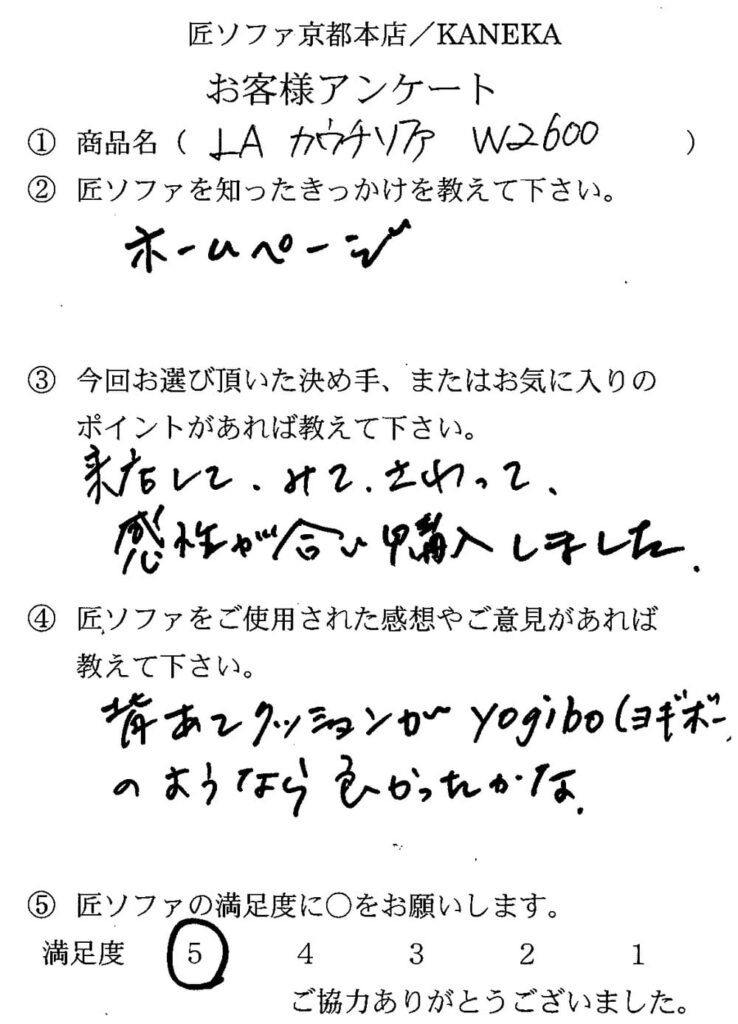 匠ソファ京都本店／KANEKA
お客様アンケート
① 商品名（ LA カウチソファ W2600 ）
② 匠ソファを知ったきっかけを教えて下さい。
ホームページ
③ 今回お選び頂いた決め手、またはお気に入りの
ポイントがあれば教えて下さい。
来店して、みて、さわって、
感性が合い購入しました。
④ 匠ソファをご使用された感想やご意見があれば
教えて下さい。
背あてクッションが yogibo (ヨギボー
のようなら良かったかな。
⑤ 匠ソファの満足度に○をお願いします。
満足度 5 4 3 2 1
ご協力ありがとうございました。